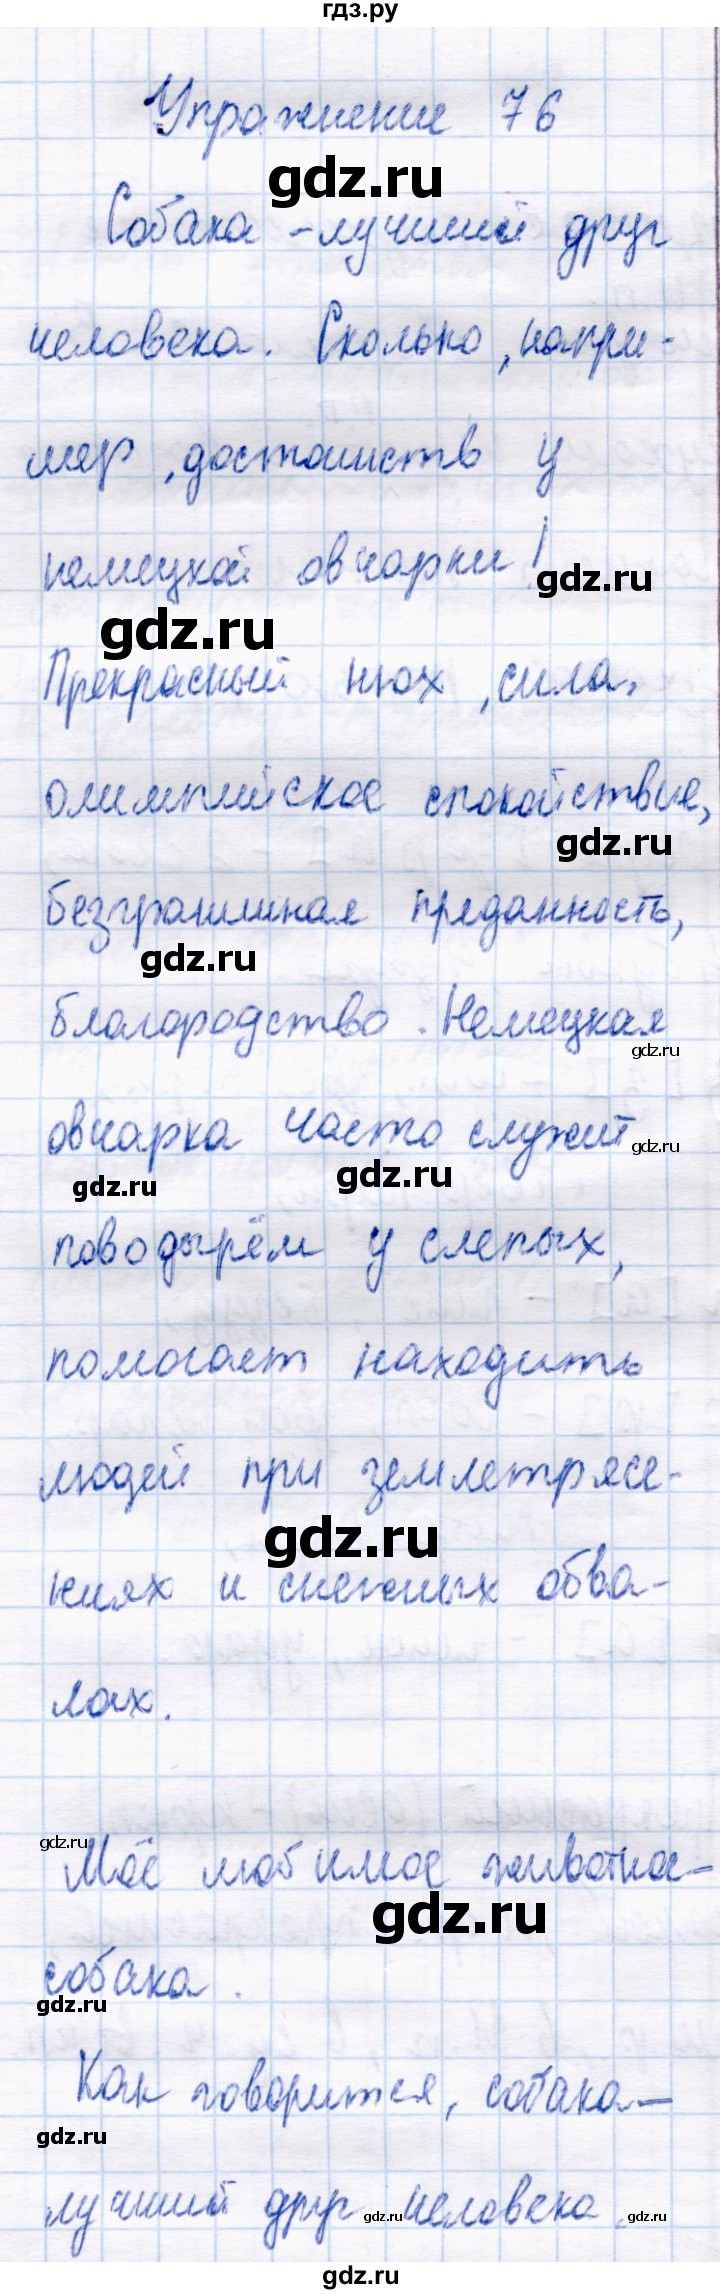 гдз.ру
Упражнение 76
gdz.ru
Собака - лучший друг
человека. Сколько, напри-
мер, достоинств у
немецкой овчарки!
gdz.ru
gdz.ru
Прекрасный нюх, сила,
олимпийское спокойствие,
gdz.ru
безграничная преданность,
gdz.ru
благородство. Немецкая
gdz.ru
овчарка часто служит
gdz.ru
gdz.ru
gdz.ru
поводырём у слепых,
помогает находить
людей при землетрясе-
gdz.ru
ниях и снежных обва-
лах.
gdz.ru
Моё любимое животное-
gdz.ru
собака.
gdz.ru
Как говорится, собака-
gdz.ru
лучший друг человека.
gdz.ru
gdz.ru
gdz.ru